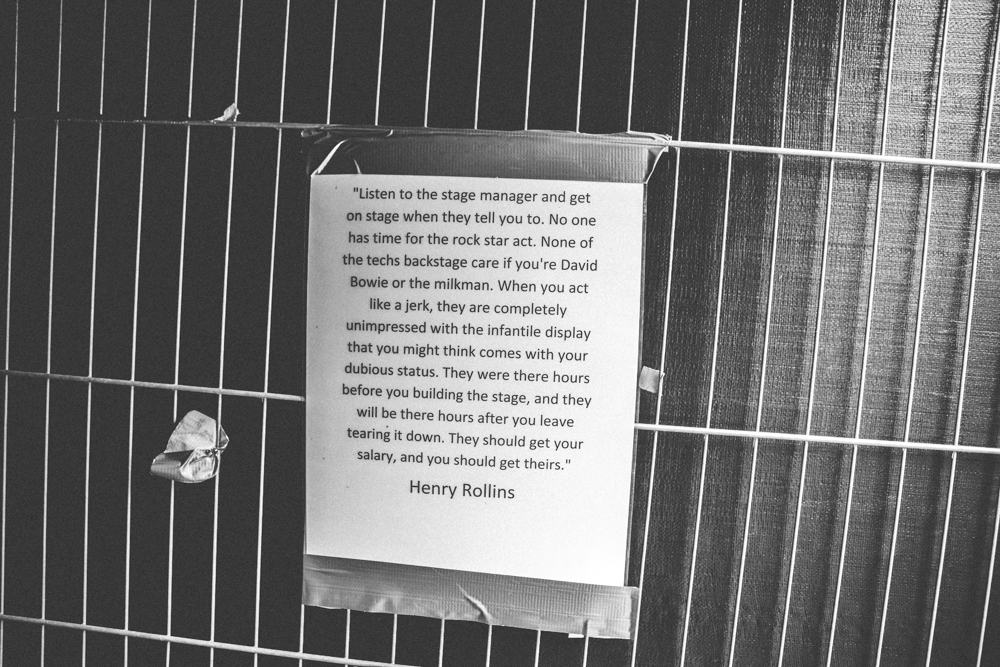 "Listen to the stage manager and get
on stage when they tell you to. No one
has time for the rock star act. None of
the techs backstage care if you're David
Bowie or the milkman. When you act
like a jerk, they are completely
unimpressed with the infantile display
that you might think comes with your
dubious status. They were there hours
before you building the stage, and they
will be there hours after you leave
tearing it down. They should get your
salary, and you should get theirs."
Henry Rollins